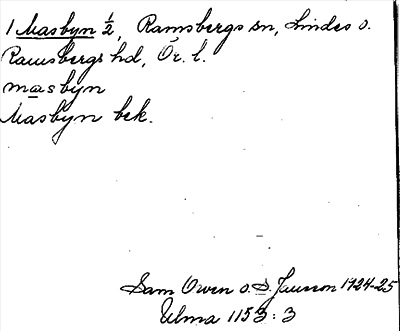 1 Masbyn ½, Ramsbergs sn, Lindes o.
Ramsbergs hd, Ör. l.
masbyn
Masbyn bek.
Sam Owen o. S. Jansson 1924-25
Ulma 1153:3